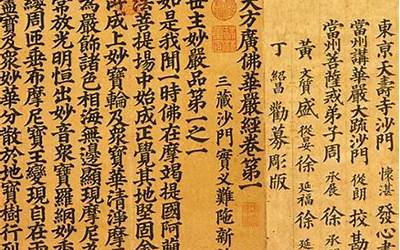 東京天壽寺沙門 懷湛 發心書
當州講華嚴大疏沙門 從朗 挍勘
當州菩薩戒弟子周 承展 徐 承
黃 文寶 盛 從 徐 延福 徐
丁 紹昌 勸募彫版
大方廣佛華嚴經卷第一
三藏沙門實叉難陁新
世主妙嚴品第一之一
如是我聞一時佛在摩竭提國阿蘭
法菩提場中始成正覺其地堅固
所成上妙寶輪及衆寶華清淨摩
爲嚴飾諸色相海無邊顯現摩尼
常放光明恒出妙音衆寶羅網妙
纓周匝垂布摩尼寶王變現自在
寶及衆妙華分散於地寶樹行列